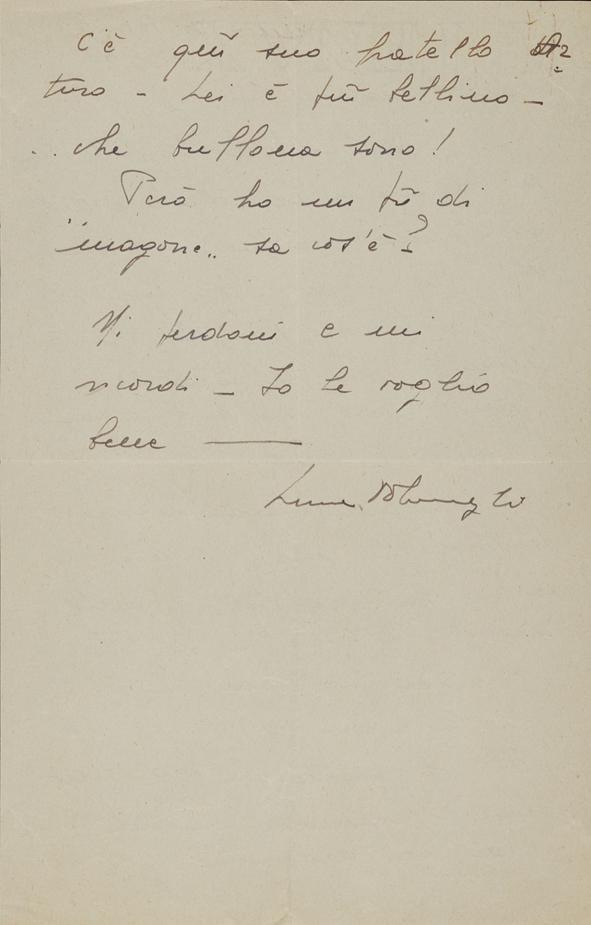 C'è quì suo fratello Ar=
turo - Lei è più bellino -
.. che buffona sono!
Però ho un pò di
"magone" sa cos'è?
Mi perdoni e mi
ricordi - Io le voglio
bene